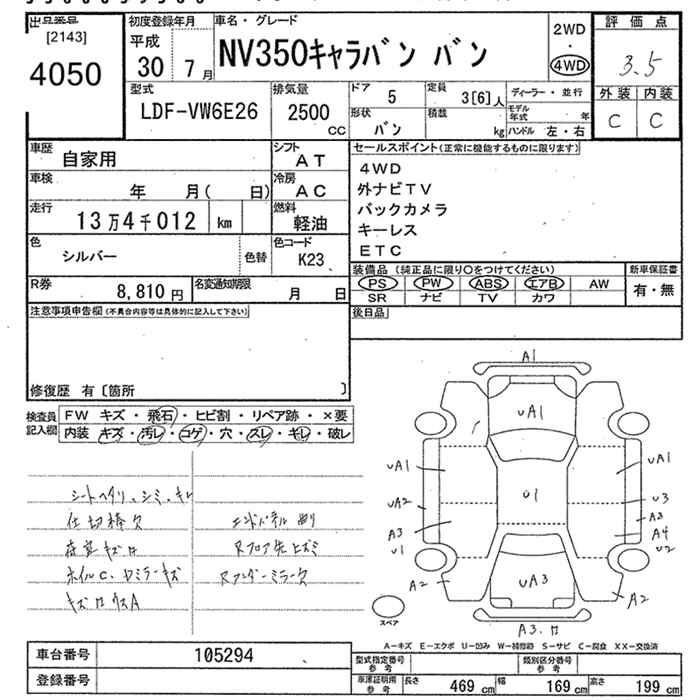 出品番号
[2143]
4050
初度登録年月
平成
30 7月
車名・グレード
NV350キャラバン バン
2WD
・
4WD
評価点
3.5
外装 内装
C C
型式
LDF-VW6E26
排気量
2500
cc
ドア 5
定員 3[6]人
ディーラー・並行
形状 バン
積載 kg
モデル年式 年
ハンドル 左・右
車歴 自家用
シフト AT
車検 年 月( 日)
冷房 AC
走行 13万4千012 km
燃料 軽油
色 シルバー
色替
色コード K23
R券 8,810円
名変通知期限 月 日
セールスポイント(正常に機能するものに限ります)
4WD
外ナビTV
バックカメラ
キーレス
ETC
装備品 (純正品に限り○をつけてください)
新車保証書
PS PW ABS エアB AW
SR ナビ TV カワ
有・無
後日品
注意事項申告欄(不具合内容等は具体的に記入して下さい)
修復歴 有〔箇所 〕
検査員記入欄
FW キズ・飛石・ヒビ割・リペア跡・×要
内装 キズ・汚レ・コゲ・穴・スレ・キレ・破レ
シートヘタリ、シミ、キレ
仕切棒欠
エンドパネル凹
荷室キズ凹
Rフロア先上ズミ
ホイルC、ドミラーキズ
Rアンダーミラー欠
A1
UA1
UA1
UA1
U1
UA2
U3
A3
A3
U1
A4
U2
A2
UA3
A2
A3.凹
スペア
A-キズ E-エクボ U-凹み W-補修跡 S-サビ C-腐食 XX-交換済
車台番号 105294
登録番号
型式指定番号 参考
類別区分番号 参考
車庫証明用 参考
長さ 469 cm
幅 169 cm
高さ 199 cm